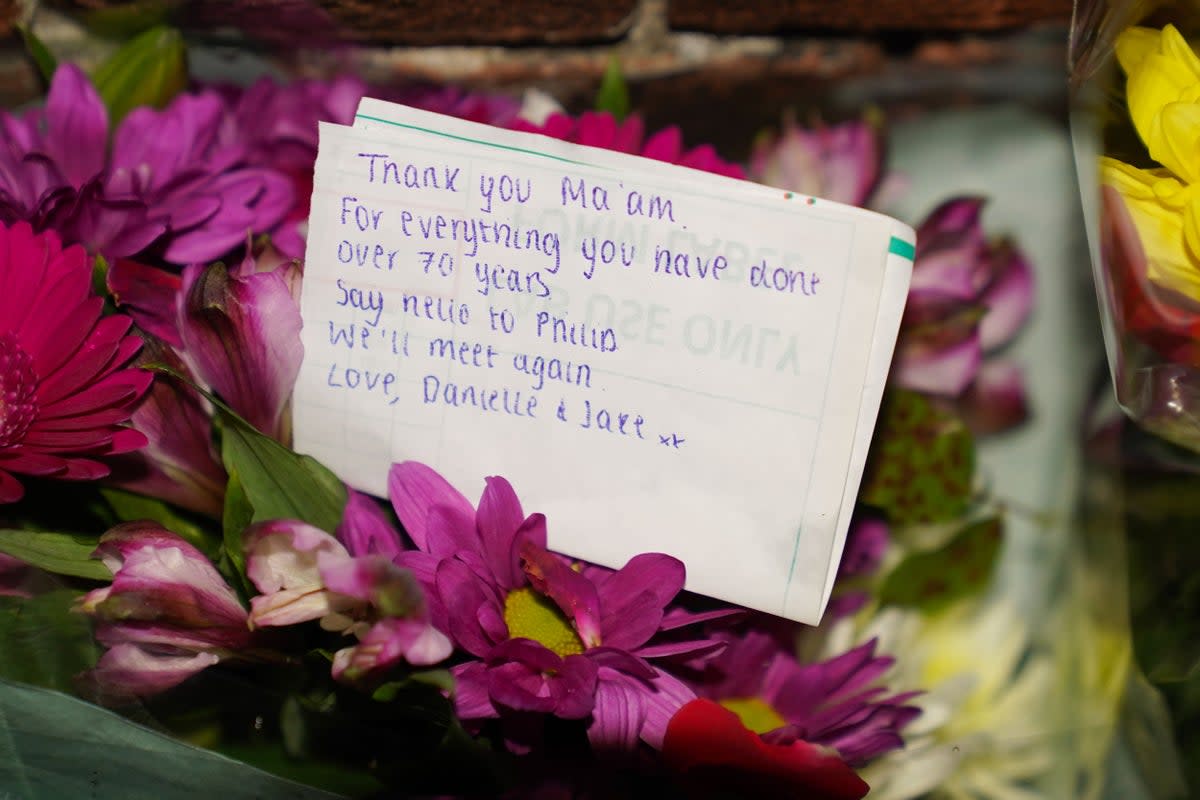 Thank you Ma'am
For everything you have done
over 70 years
Say hello to Philip
We'll meet again.
Love, Danielle & Jake xx
USE ONLY